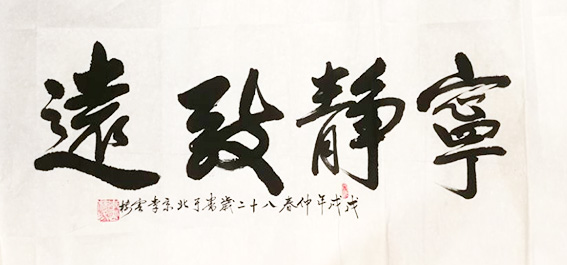 寧靜致遠
戊戌年仲春八十二歲書于北京李